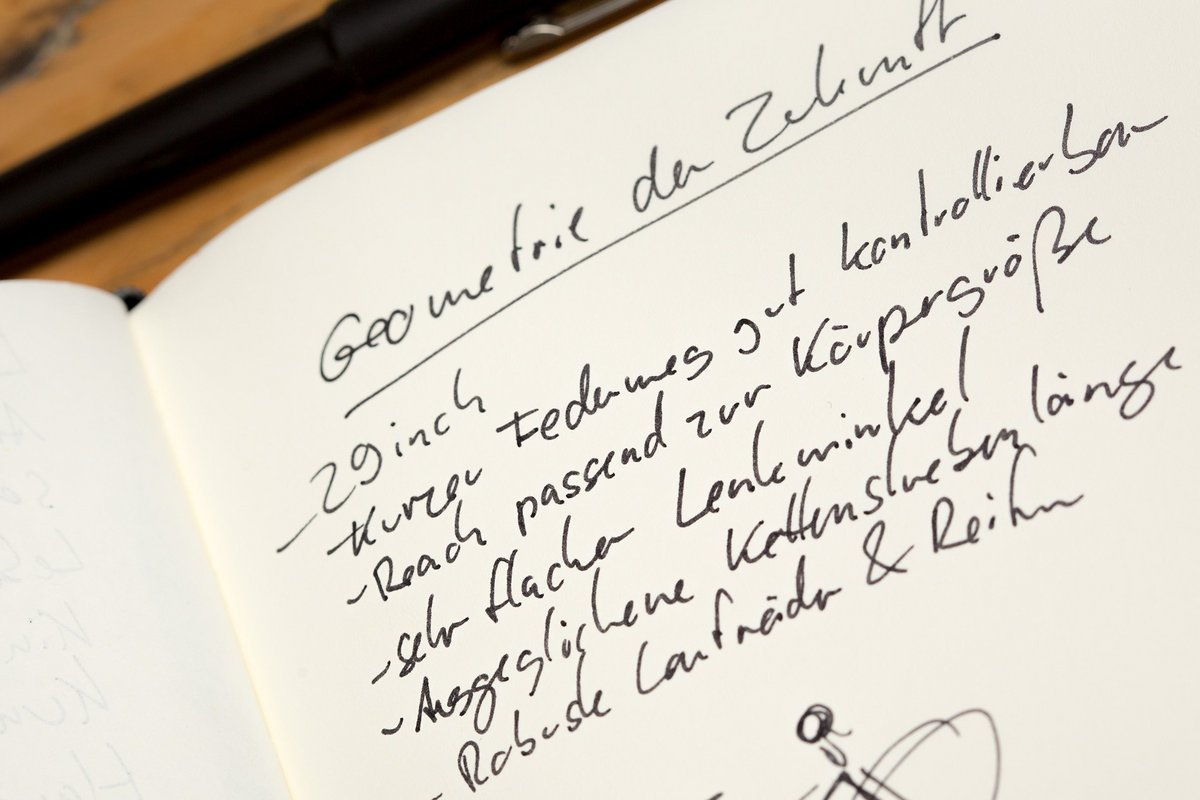 Geometrie der Zukunft
- 29 inch
- Kurzer Federweg gut kontrollierbar
- Reach passend zur Körpergröße
- sehr flacher Lenkwinkel
- Ausgeglichene Kettenstrebenlänge
- Robuste Laufräder & Reifen